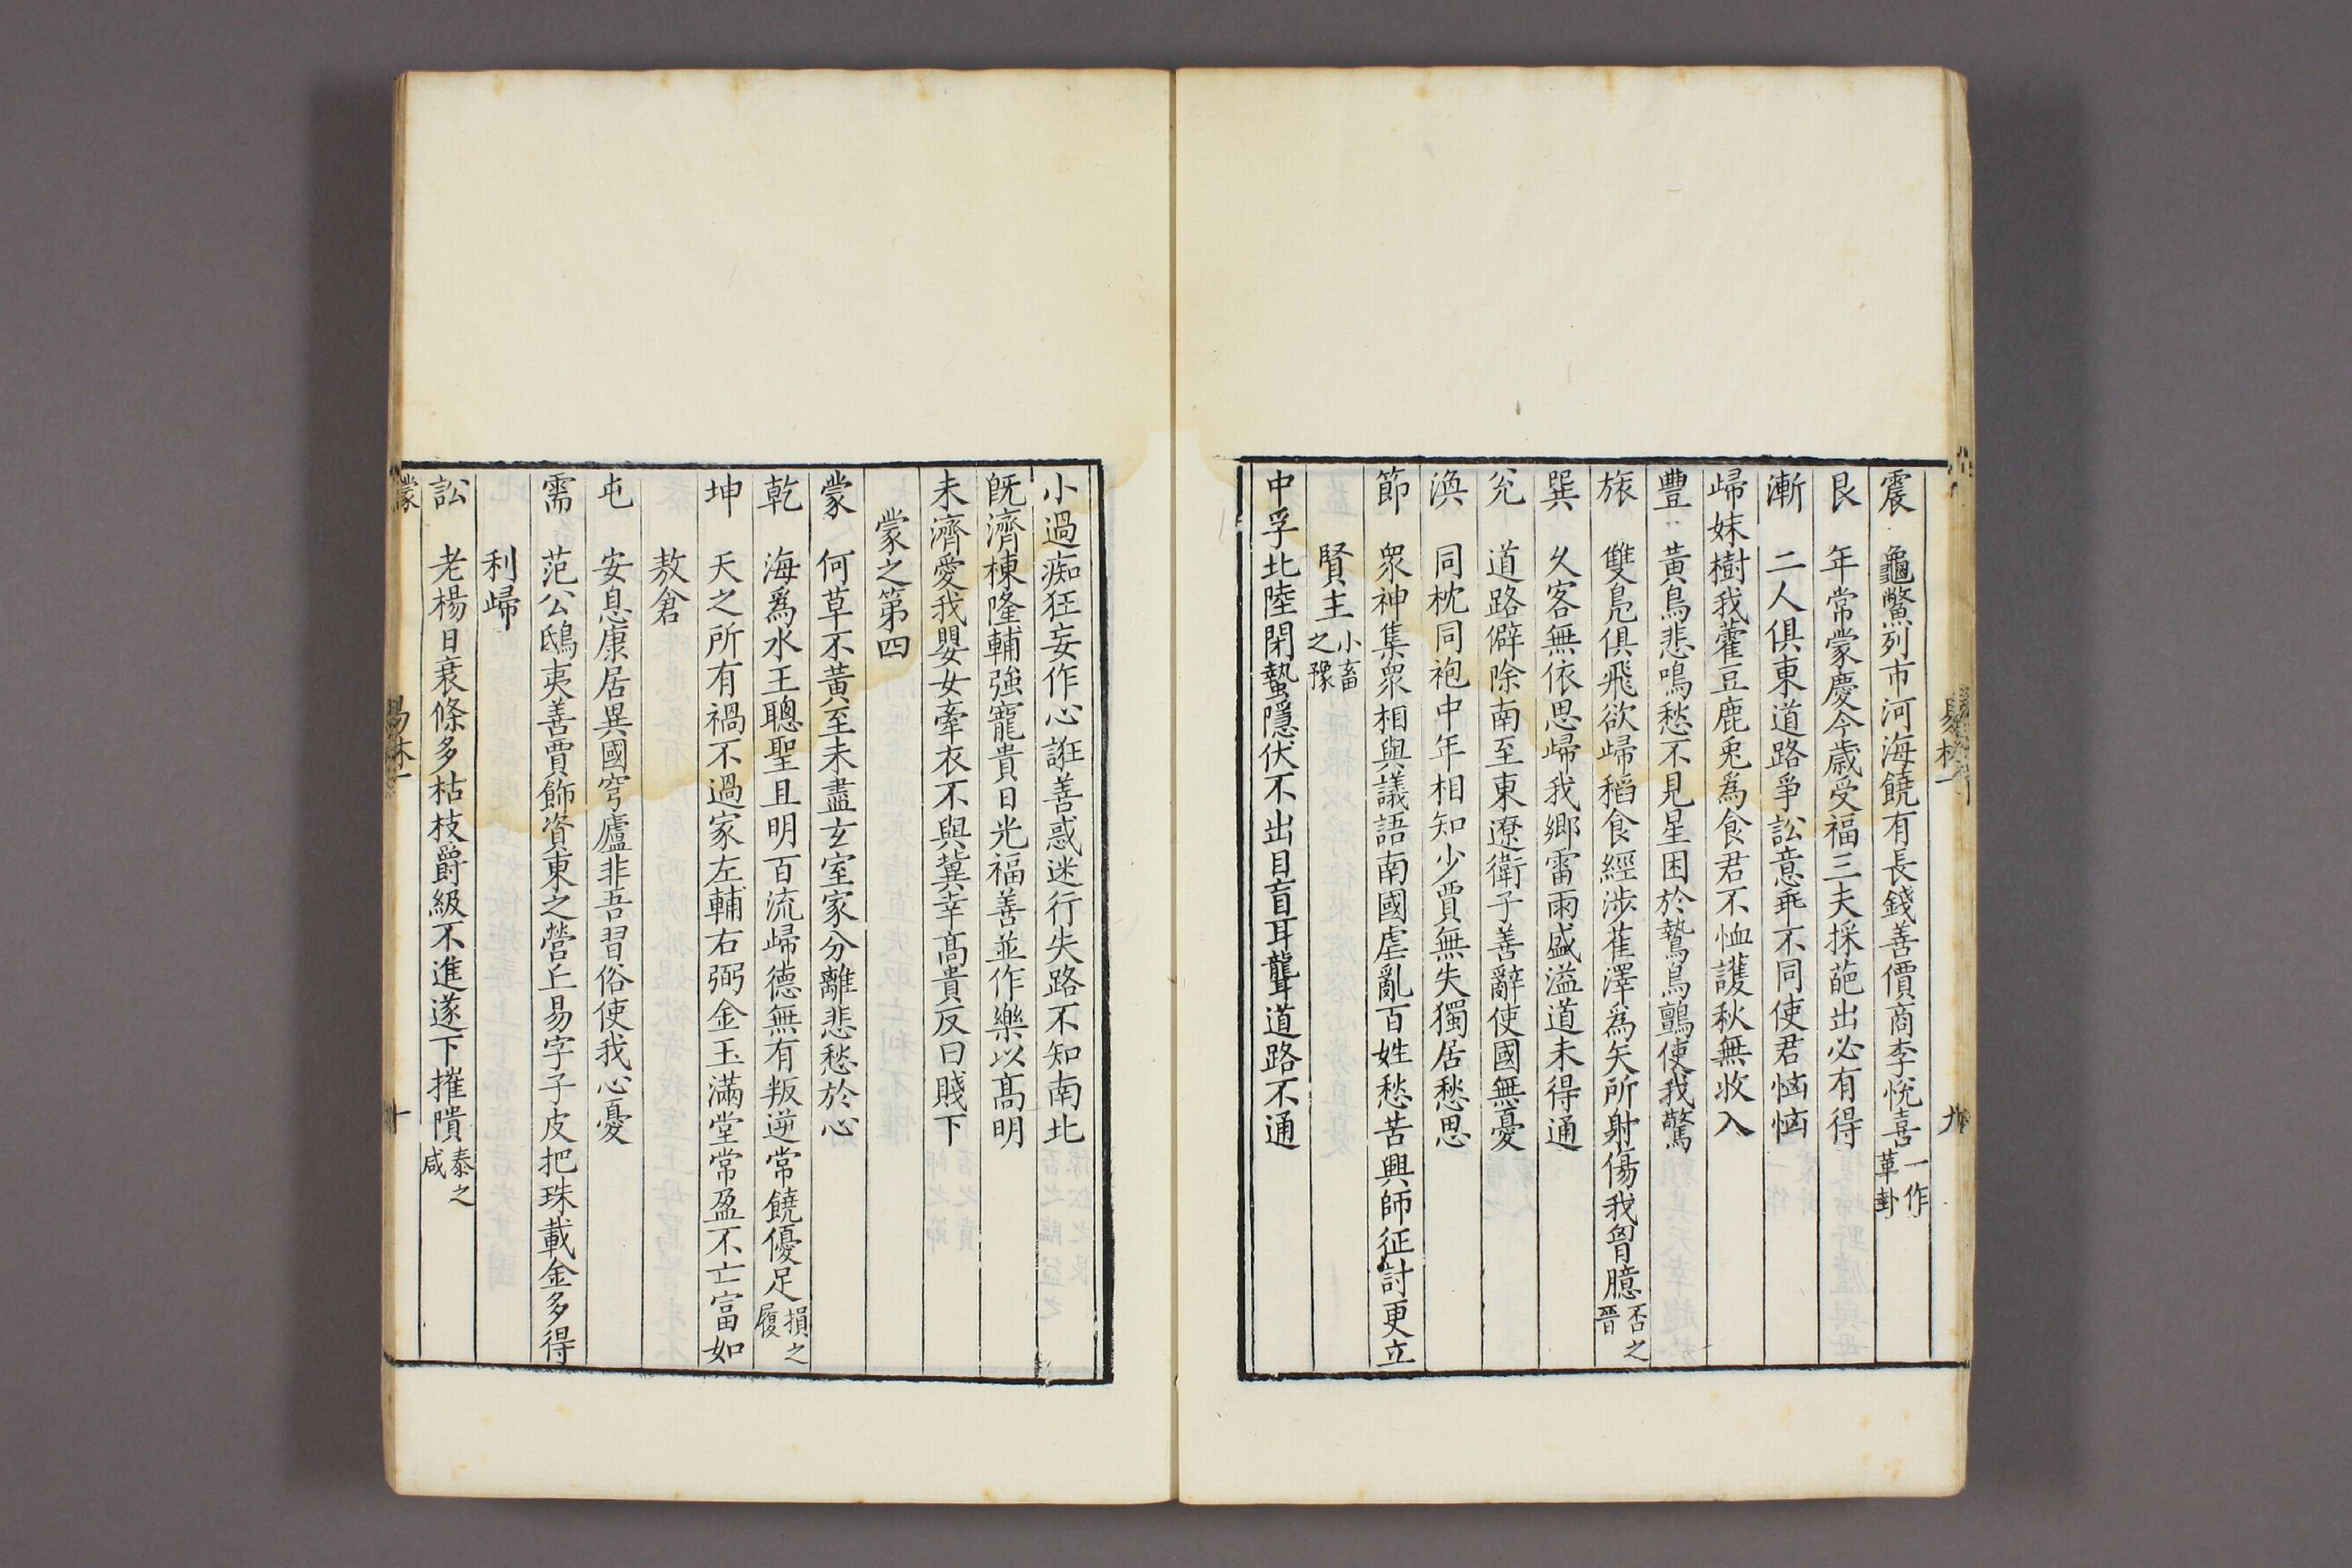 震 龜鱉列市河海饒有長錢善價商李悅喜一作革卦
艮 年常蒙慶今歲受福三夫採葩出必有得
漸 二人俱東道路爭訟意乖不同使君恼恼
歸妹樹我藿豆鹿兎爲食君不恤護秋無收入
豐 黃鳥悲鳴愁不見星困於鷙鳥鸇使我驚
旅 雙鳧俱飛欲歸稻食經涉萑澤爲矢所射傷我胷臆否之晉
巽 久客無依思歸我鄉雷雨盛溢道未得通
兊 道路僻除南至東遼衛子善辭使國無憂
渙 同枕同袍中年相知少賈無失獨居愁思
節 衆神集衆相與議語南國虐亂百姓愁苦興師征討更立
賢主小畜之豫
中孚北陸閉蟄隱伏不出目盲耳聾道路不通
小過痴狂妄作心誑善惑迷行失路不知南北
旣濟棟隆輔強寵貴日光福善並作樂以高明
未濟愛我嬰女牽衣不與冀幸高貴反曰賤下
蒙之第四
蒙 何草不黃至未盡玄室家分離悲愁於心
乾 海爲水王聰聖且明百流歸德無有叛逆常饒優足損之履
坤 天之所有禍不過家左輔右弼金玉滿堂常盈不亡富如
敖倉
屯 安息康居異國穹廬非吾習俗使我心憂
需 范公鴟夷善賈飾資東之營丘易字子皮把珠載金多得
利歸
訟 老楊日衰條多枯枝爵級不進遂下摧隤泰之咸